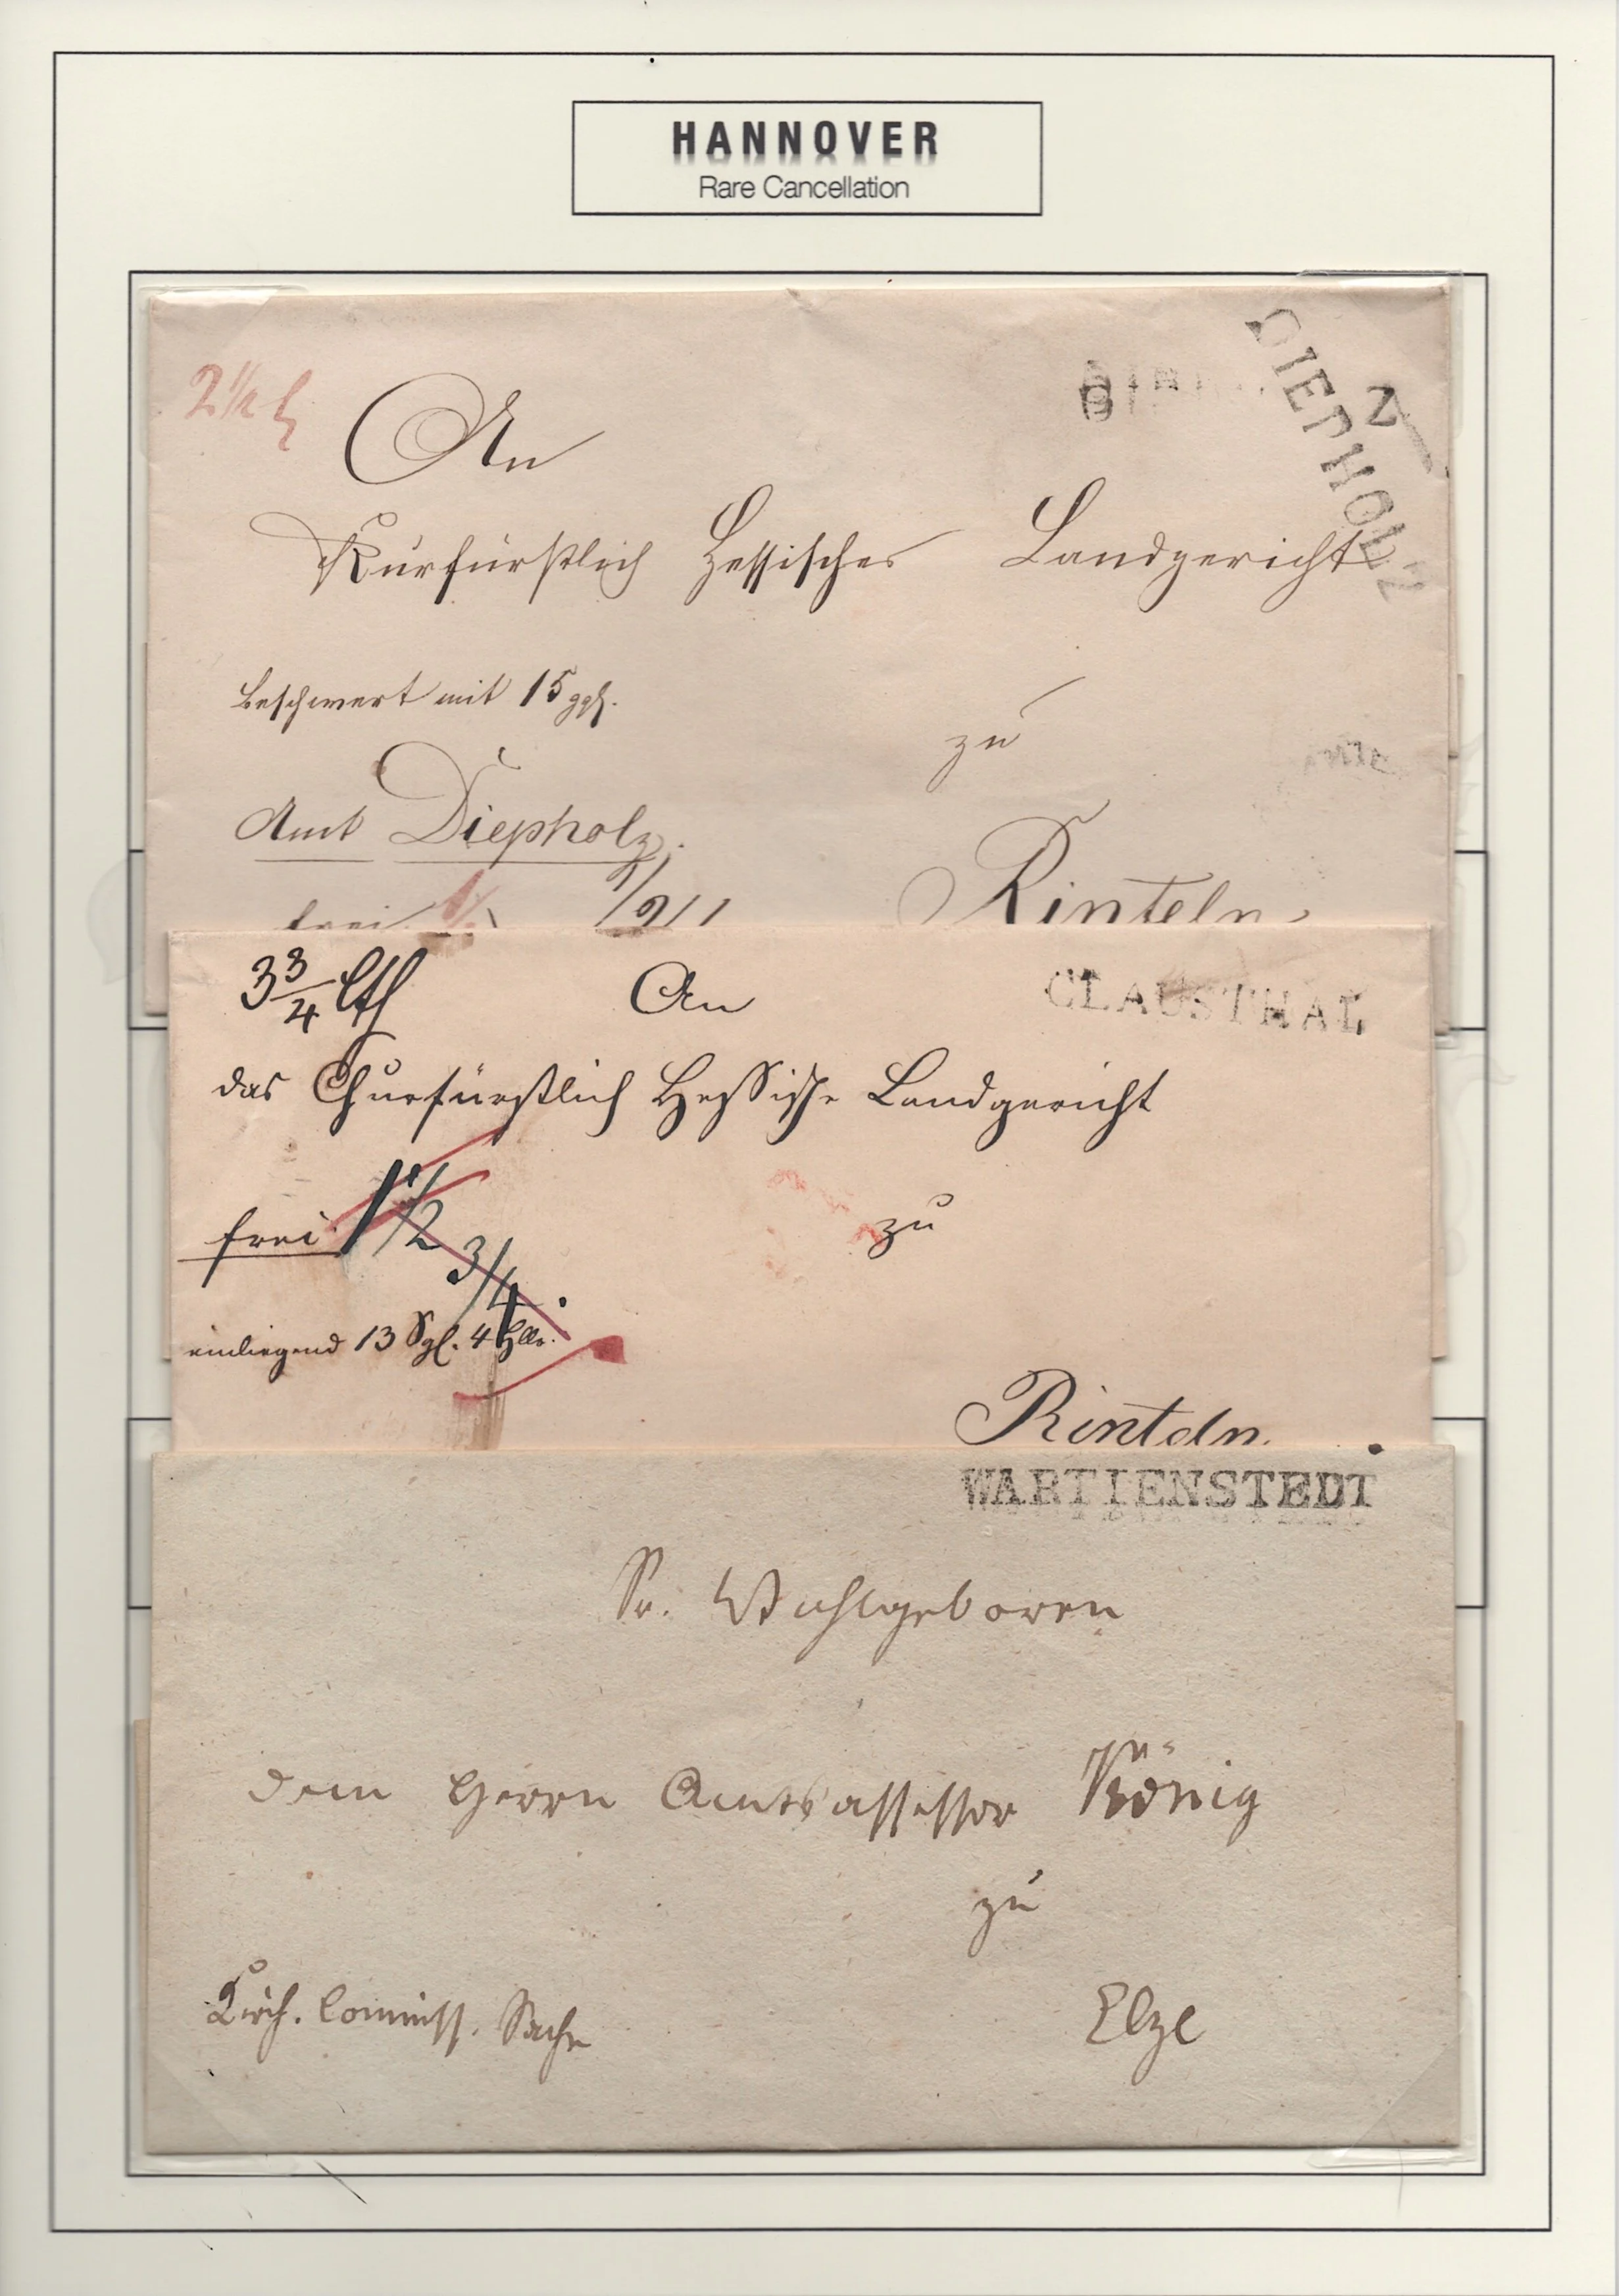 HANNOVER
Rare Cancellation
DIEPHOLZ
An
Kurfürstlich Hessisches Landgericht
beschwert mit 15 ggr.
zu
Amt Diepholz.
frei
Rinteln.
3 3/4 Lth
An
CLAUSTHAL
das Churfürstlich Hessische Landgericht
frei 1 1/2
3/4
zu
einliegend 13 Sgl. 4 Hllr.
Rinteln.
WARTIENSTEDT
Sr. Wohlgeboren
dem Herrn Amtsassessor König
zu
Kirch. Commiss. Sache
Elze